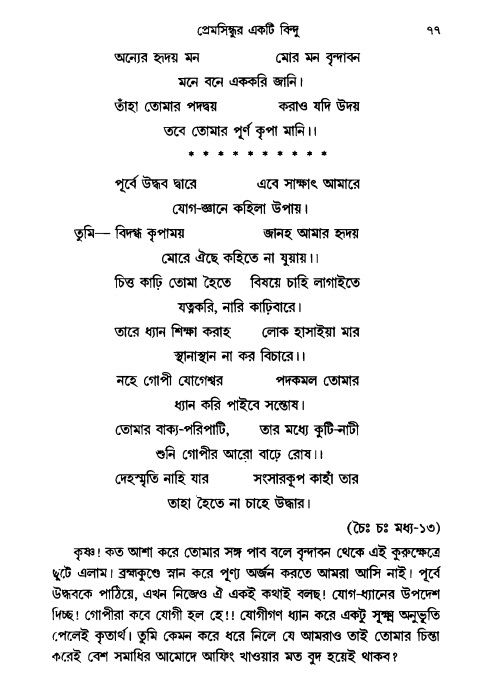 প্রেমসিন্ধুর একটি বিন্দু ৭৭
অন্যের হৃদয় মন মোর মন বৃন্দাবন
মনে বনে এককরি জানি।
তাঁহা তোমার পদদ্বয় করাও যদি উদয়
তবে তোমার পূর্ণ কৃপা মানি।।
* * * * * * * * * *
পূর্বে উদ্ধব দ্বারে এবে সাক্ষাৎ আমারে
যোগ-জ্ঞানে কহিলা উপায়।
তুমি— বিদগ্ধ কৃপাময় জানহ আমার হৃদয়
মোরে ঐছে কহিতে না যুয়ায়।।
চিত্ত কাঢ়ি তোমা হৈতে বিষয়ে চাহি লাগাইতে
যত্নকরি, নারি কাঢ়িবারে।
তারে ধ্যান শিক্ষা করাহ লোক হাসাইয়া মার
স্থানাস্থান না কর বিচারে।।
নহে গোপী যোগেশ্বর পদকমল তোমার
ধ্যান করি পাইবে সন্তোষ।
তোমার বাক্য-পরিপাটি, তার মধ্যে কুটি-নাটী
শুনি গোপীর আরো বাঢ়ে রোষ।।
দেহস্মৃতি নাহি যার সংসারকূপ কাহাঁ তার
তাহা হৈতে না চাহে উদ্ধার।
(চৈঃ চঃ মধ্য-১৩)
কৃষ্ণ! কত আশা করে তোমার সঙ্গ পাব বলে বৃন্দাবন থেকে এই কুরুক্ষেত্রে
ছুটে এলাম। ব্রহ্মকুণ্ডে স্নান করে পূণ্য অর্জন করতে আমরা আসি নাই। পূর্বে
উদ্ধবকে পাঠিয়ে, এখন নিজেও ঐ একই কথাই বলছ! যোগ-ধ্যানের উপদেশ
দিচ্ছ! গোপীরা কবে যোগী হল হে!! যোগীগণ ধ্যান করে একটু সূক্ষ্ম অনুভূতি
পেলেই কৃতার্থ। তুমি কেমন করে ধরে নিলে যে আমরাও তাই তোমার চিন্তা
করেই বেশ সমাধির আমোদে আফিং খাওয়ার মত বুদ হয়েই থাকব?